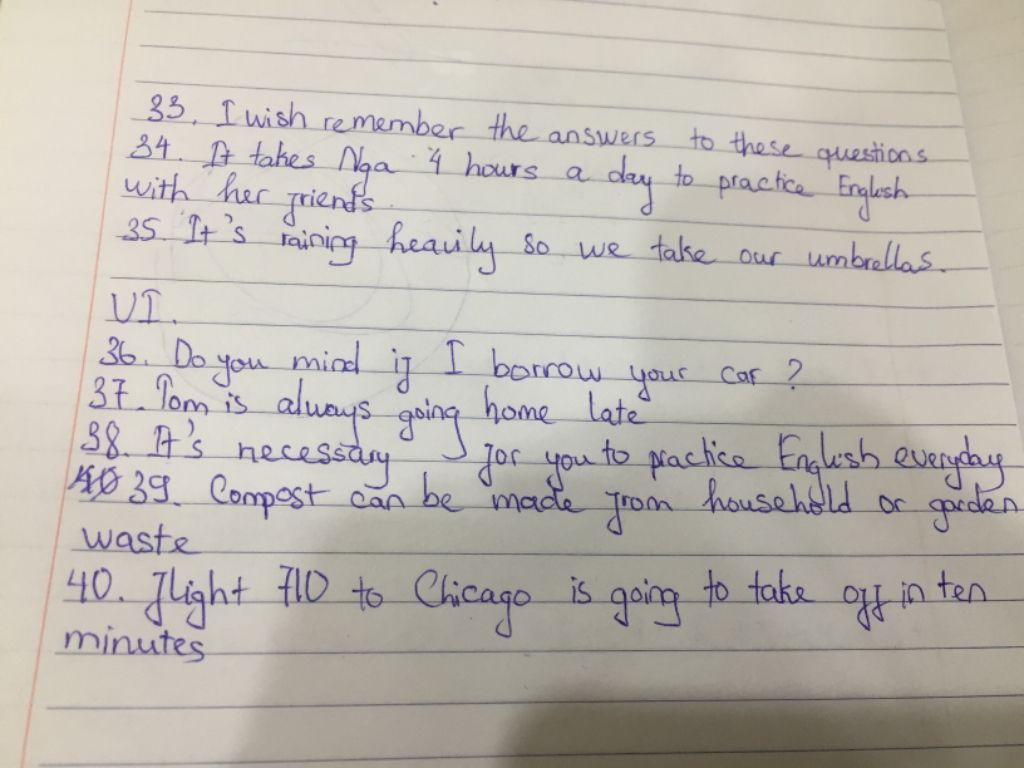 33. I wish remember the answers to these questions
34. It takes Nga 4 hours a day to practice English
with her friends.
35 It's raining heavily so we take our umbrellas.
VI.
36. Do you mind if I borrow your car ?
37. Tom is always going home late
38. It's necessary for you to practice English everyday
39. Compost can be made from household or garden
waste
40. Flight 710 to Chicago is going to take off in ten
minutes